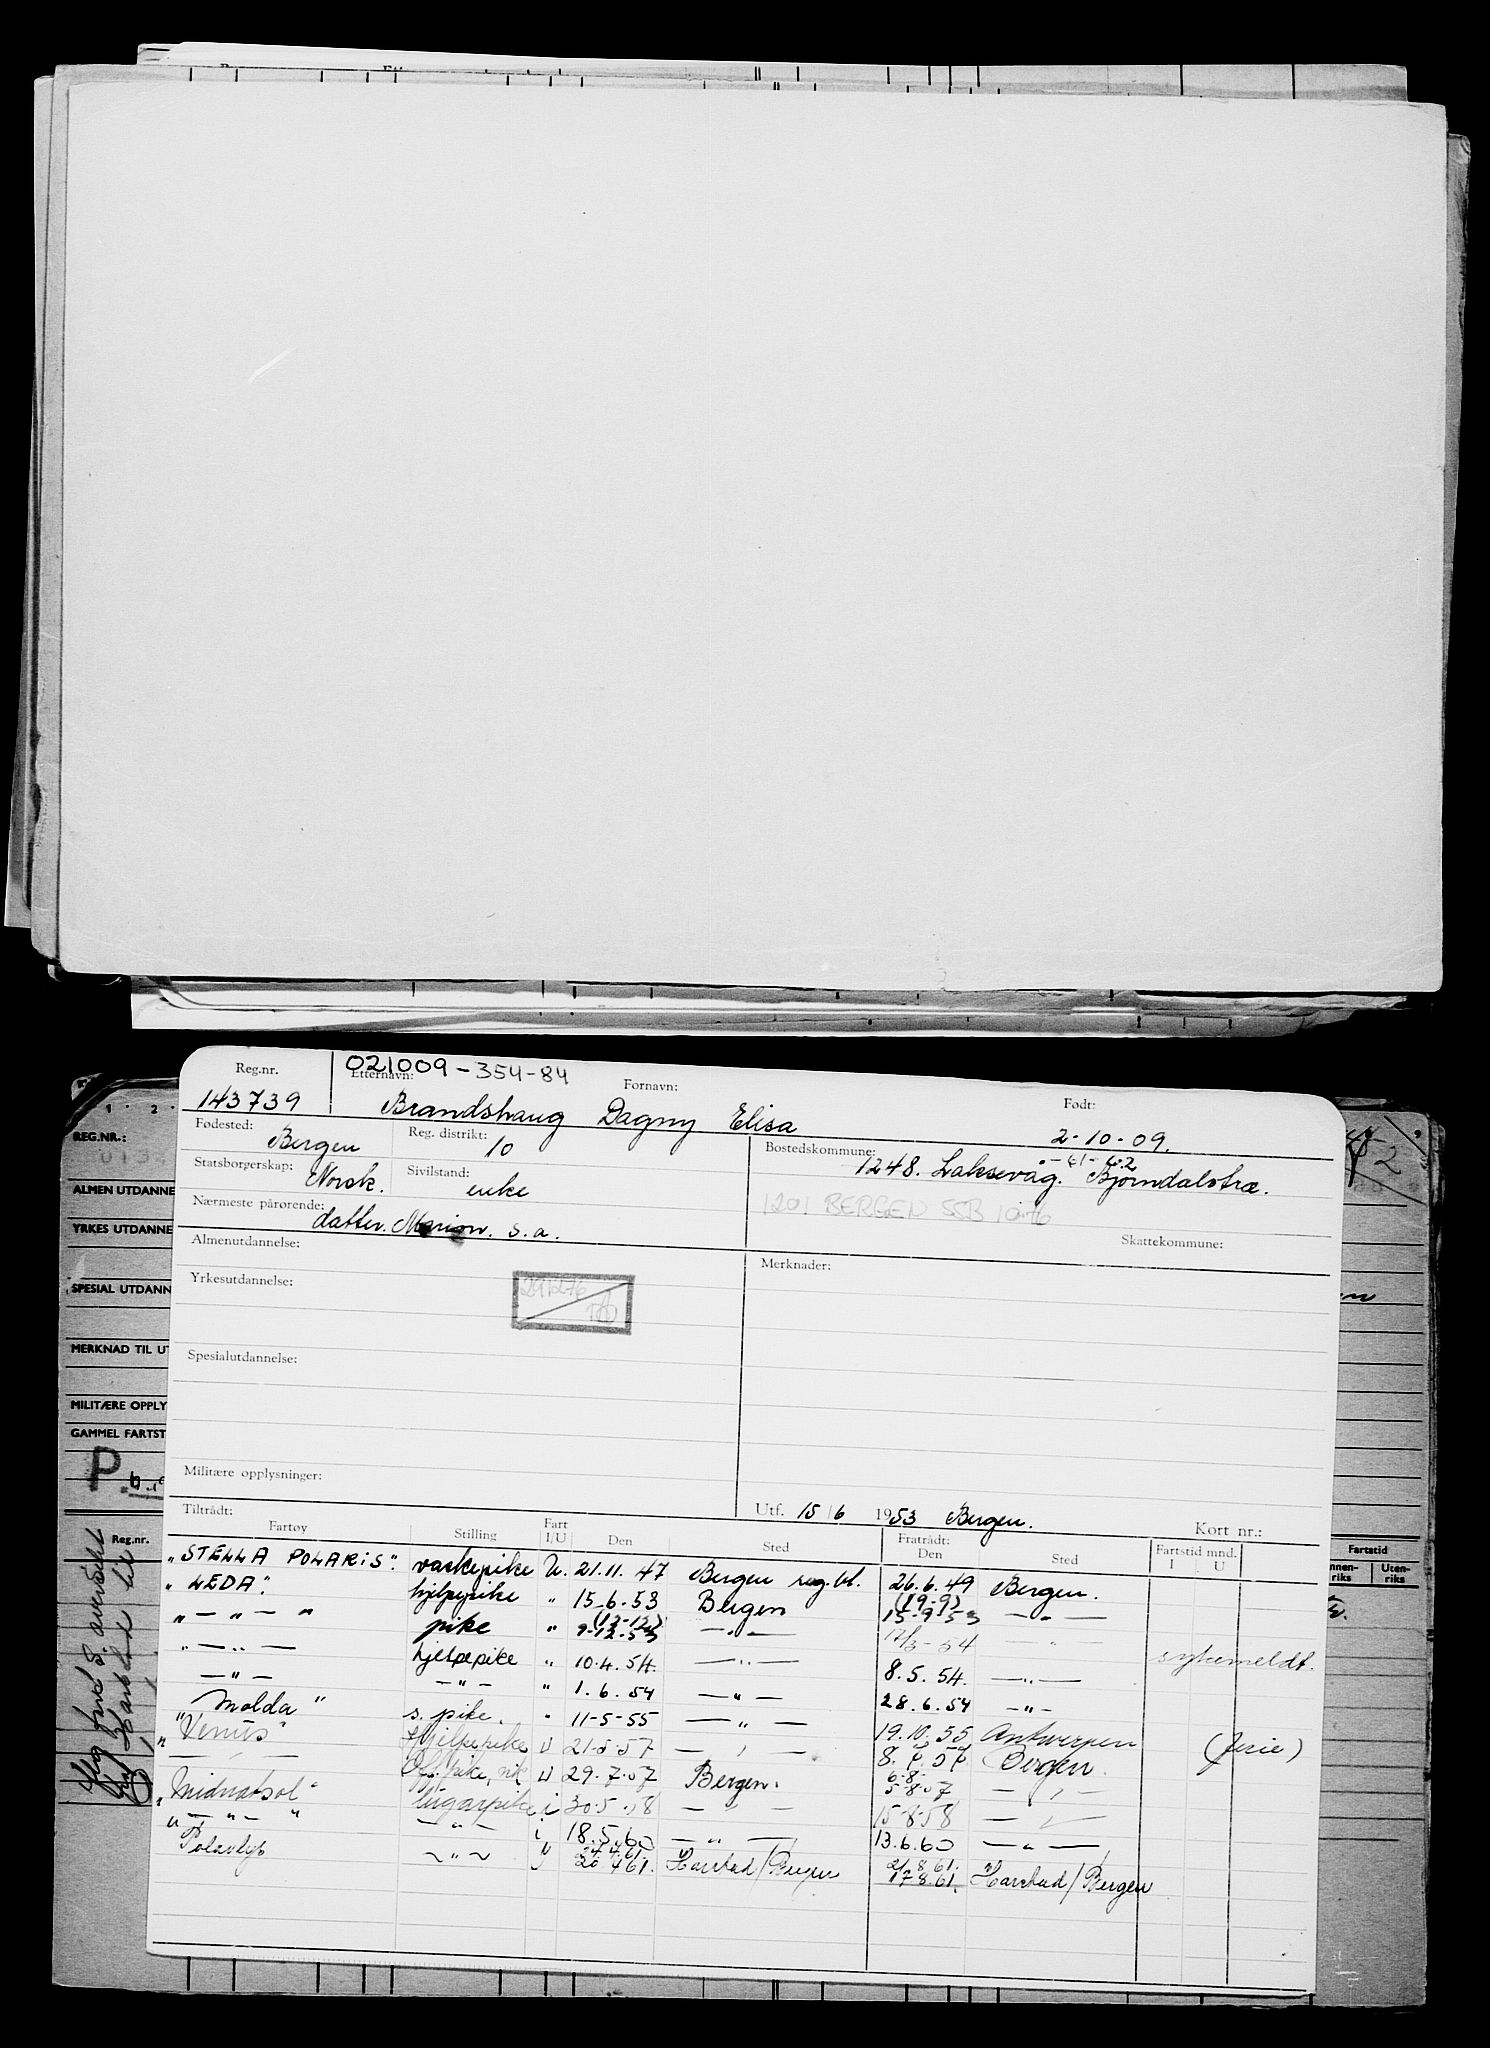 Reg.nr. 021009-354-84
Etternavn: Fornavn: Født:
143739 Brandshaug Dagny Elisa 2-10-09.
Fødested: Bergen Reg. distrikt: 10 Bostedskommune: 1248. Laksevåg. Bjørndalstræ.
Statsborgerskap: Norsk. Sivilstand: enke
1201 BERGEN SSB 10.76
Nærmeste pårørende: datter. Marion. s.a.
Skattekommune:
Almenutdannelse:
Merknader:
Yrkesutdannelse:
291276
Spesialutdannelse:
Militære opplysninger:
Utf. 15/6 1953 Bergen.
Tiltrådt: Fratrådt: Kort nr.:
Fartøy Stilling Fart I/U Den Sted Den Sted Fartstid mnd. I U
"STELLA POLARIS". vaskepike U. 21.11.47 Bergen reg.bl. 26.6.49 Bergen.
"LEDA". hjelpepike " 15.6.53 Bergen (19-9) 15-9-53 —"—
" — " — " pike " (12-12) 9-12-53 —"— 17/3-54 —"— sykemeldt.
" — " — hjelpepike " 10.4.54. —"— 8.5.54. —"—
— " — — " — " 1.6.54 —"— 28.6.54 —"—
"Molda" s. pike. " 11-5-55 —"— 19.10.55 Antwerpen (ferie)
"Venus" Hjelpepike U 21.5.57 —"— Bergen.
— " — U 29.7.57 Bergen. 6-8- 5-8-57 —"—
"Midnatsol" lugarpike i 30.5.58 —"— 15-8-58 —"—
" — " — " — " — i 18.5.60 —"— 13.6.60 —"—
Polarlys ~ " ~ 24.4.61. 20 4 61. Harstad/Bergen 21.8.61. 17 8.61. Harstad/Bergen
REG.NR.:
ALMEN UTDANNE
YRKES UTDANNE
SPESIAL UTDANN
MERKNAD TIL UT
MILITÆRE OPPLY
GAMMEL FARTST
P.
Reg.nr.
Fartstid
nnen-riks Uten-riks